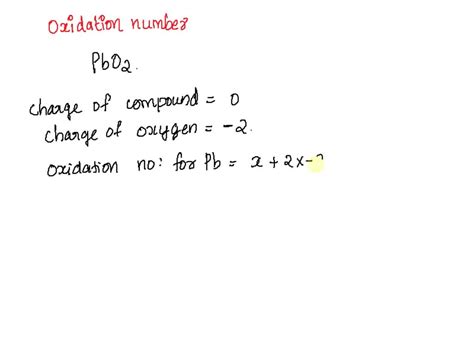 Oxidation number
PbO2.
charge of compound = 0
charge of oxygen = -2.
oxidation no: for Pb = x + 2x-2